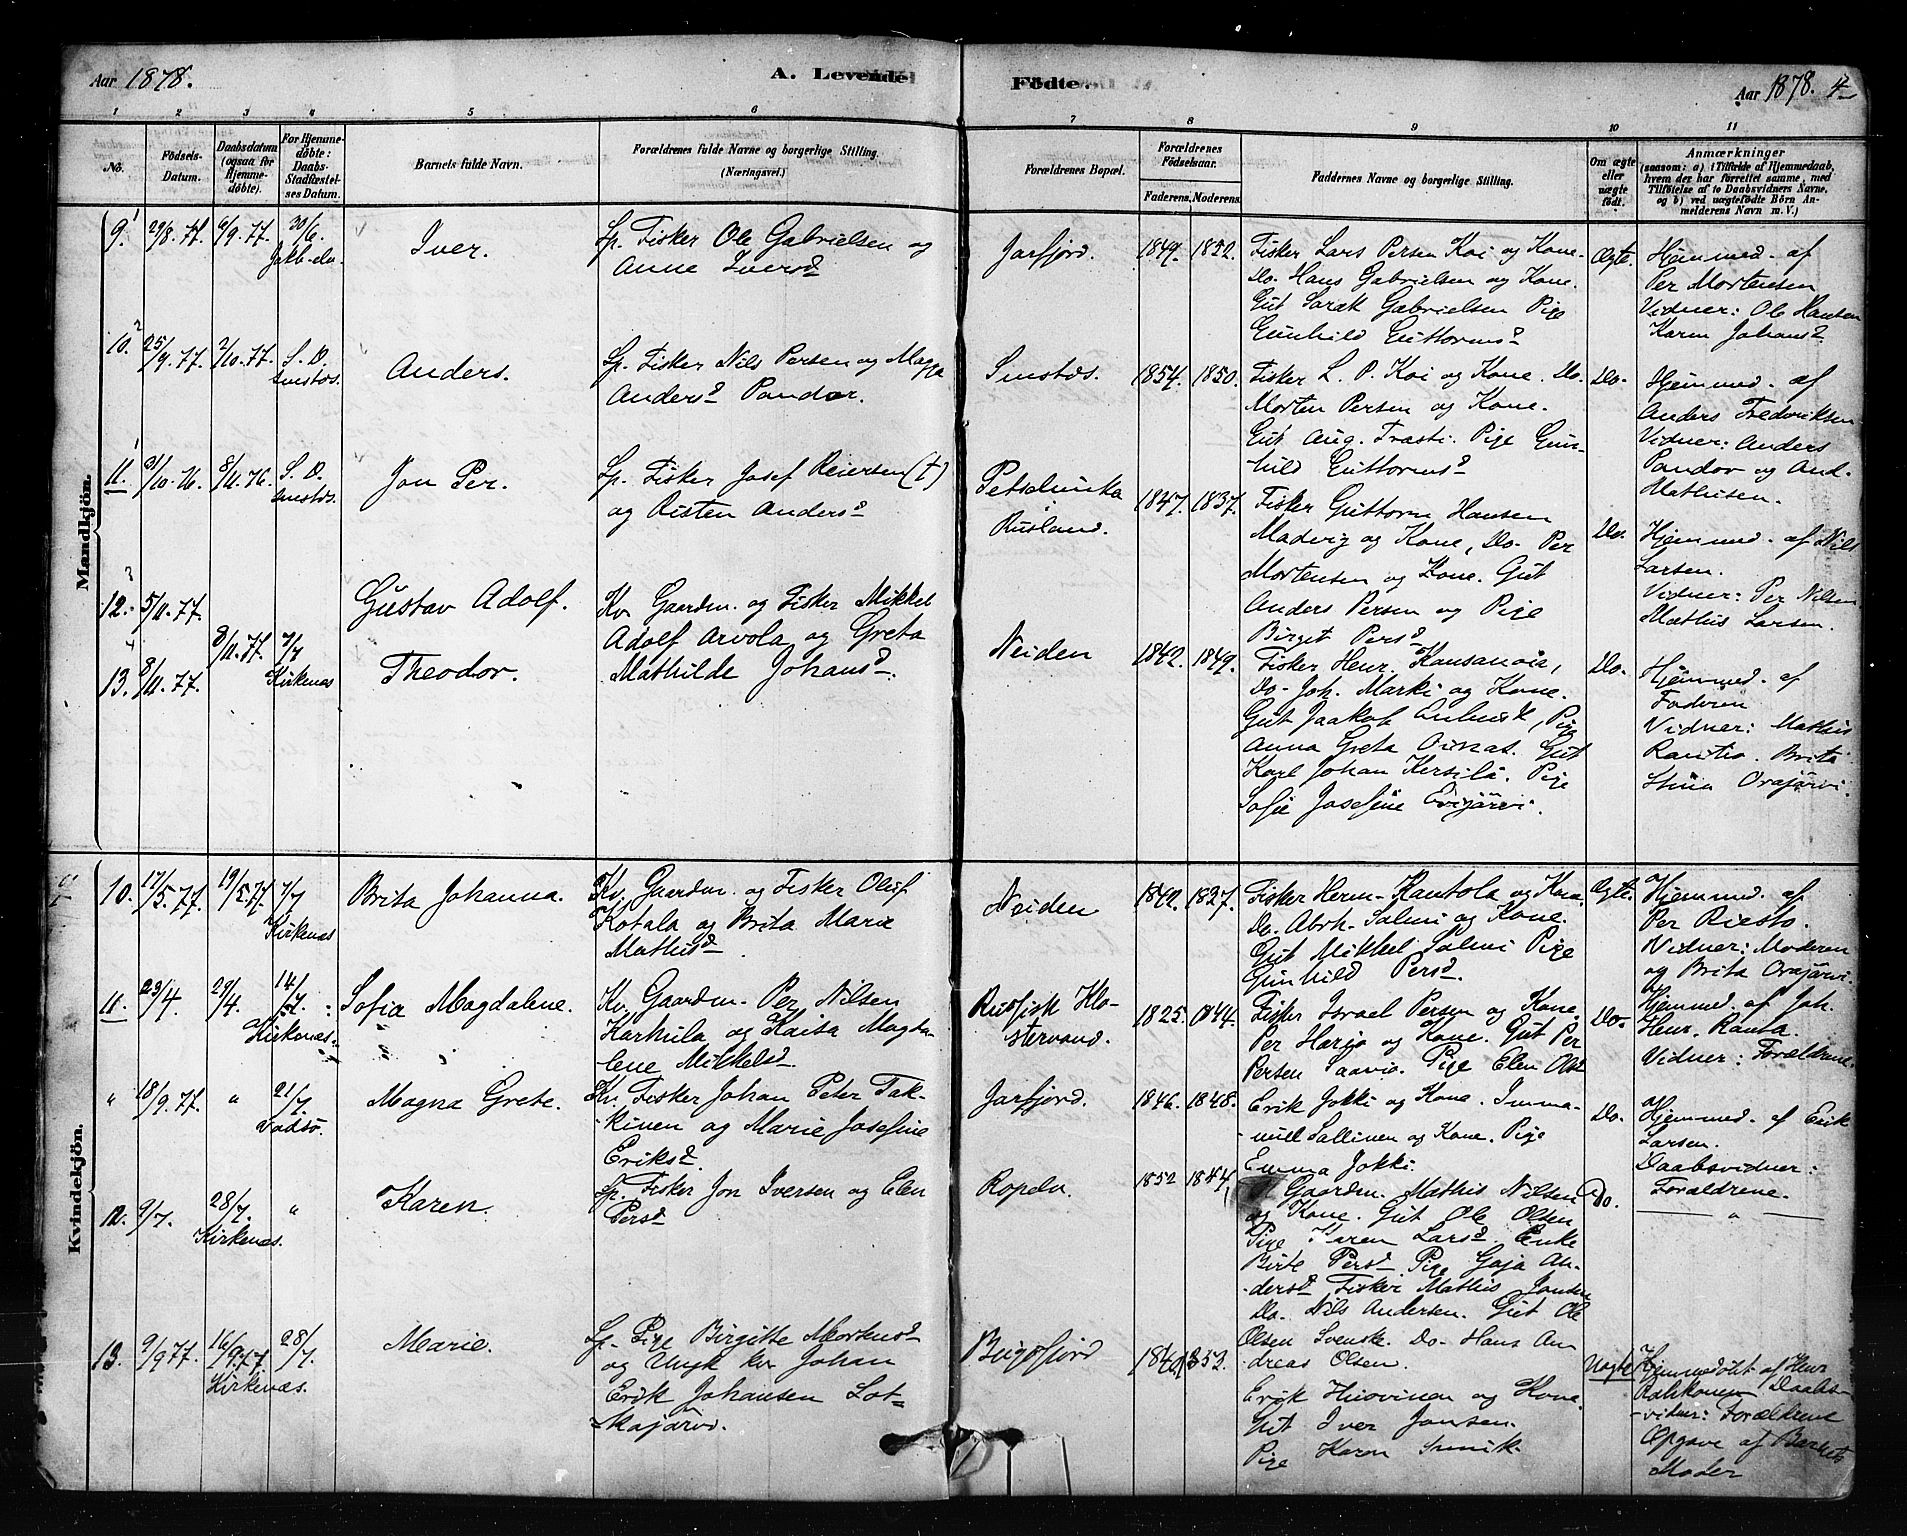 Aar 1878. A. Levende Födte. Aar 1878. 4
1 2 3 4 5 6 7 8 9 10 11
No. Födsels-Datum. Daabsdatum (ogsaa for Hjemmedöbte). For Hjemmedöbte: Daabs Stadfæstelses Datum. Barnets fulde Navn. Forældrenes fulde Navne og borgerlige Stilling (Næringsvei.) Forældrenes Bopæl. Forældrenes Födselsaar. Faderens. Moderens. Faddernes Navne og borgerlige Stilling. Om ægte eller uægte födt. Anmærkninger (saasom: a) i Tilfælde af Hjemmedaab, hvem der har forrettet samme, med Tilföielse af to Daabsvidners Navne, og b) ved uægtefödte Börn Anmelderens Navn m. V.)
Mandkjön.
9. 29/8. 77. 6/9. 77. 30/6. Jakb-elv.
Iver.
Lp. Fisker Ole Gabrielsen og
Anne Iversd
Jarfjord. 1849. 1852.
Fisker Lars Persen Koi og Kone.
Do. Hans Gabrielsen og Kone.
Gut Sarak Gabrielsen Pige
Gunhild Guttormsd
Ægte.
Hjemmed. af
Per Mortensen
Vidner: Ole Hansen
Karen Johansd
10. 25/9. 77. 2/10. 77. S. D.
Anders.
Lp. Fisker Nils Persen og Magga
Andersd Pandor.
1854. 1850.
Fisker L. P. Koi og Kone. Do.
Morten Persen og Kone.
Gut Aug. Trasti. Pige Gun-
hild Guttormsd
Do.
Hjemmed. af
Anders Fredriksen
Vidner: Anders
Pandor og And.
Mathisen.
11. 31/10. 76. 8/11. 76. S. D.
Jon Per.
Lp. Fisker Josef Reiersen (†)
og Risten Andersd
Rusland. 1847. 1837.
Fisker Guttorm Hansen
Madvig og Kone, Do. Per
Mortensen og Kone. Gut
Anders Persen og Pige
Birget Persd
Do.
Hjemmed. af Nils
Larsen.
Vidner: Per Nilsen
Mathis Larsen.
12. 5/11. 77.
Gustav Adolf.
13. 8/11. 77. 8/11. 77. 7/7 Kirkenæs
Theodor.
Kv. Gaardm. og Fisker Mikkel
Adolf Arvola og Greta
Mathilde Johansd
Neiden 1842. 1849.
Fisker Henr. Kansanois,
Do. Joh. Marki og Kone.
Gut Jaakob, Pige
Anna Greta Oinas. Gut
Karl Johan Kersilä. Pige
Sofie Josefine
Do.
Hjemmed. af
Faderen
Vidner: Mathis
Rantio. Brita
Stina Orajärvi.
Kvindekjön.
10. 17/5. 77. 19/5. 77. 7/7 Kirkenæs
Brita Johanna.
Kv. Gaardm. og Fisker Oluf
Kotala og Brita Maria
Mathisd
Neiden 1842. 1827.
Fisker Herm. Kantola og Kone
Do. Abrh. Salmi og Kone.
Gut Mikkel Salmi Pige
Gunhild Persd
Ægte.
Hjemmed. af
Per Riesto.
Vidner: Moderen
og Brita Orajärvi.
11. 23/4. 29/4. 14/7. Kirkenæs.
Sofia Magdalene.
Kv. Gaardm. Per Nilsen
Karhula og Kaisa Magda-
lene Mikkelsd
Russisk Klo-
stervand. 1825. 1844.
Fisker Israel Persen og Kone
Per Harjo og Kone. Gut Per
Persen Saavio. Pige Elen Olsd
Do.
Hjemmed. af Joh.
Henr. Ranta.
Vidner: Forældrene
" 18/9. 77. " 21/7. Vadsö.
Magna Grete.
Kv. Fisker Johan Peter Tak-
kinen og Marie Josefine
Eriksd
Jarfjord. 1846. 1848.
Erik Jokki og Kone. Imma-
nuel Sallinen og Kone. Pige
Emma Jokki.
Do.
Hjemmed. af Erik
Larsen.
Daabsvidner:
Forældrene.
12. 9/7. 28/7. Kirkenæs. "
Karen.
Lp. Fisker Jon Iversen og Elen
Persd
Ropelv. 1852 1844,
Gaardm. Mathis Nilsen
og Kone. Gut Ole Olsen
Pige Karen Larsd. Enke
Birte Persd Pige Gaja An-
dersd Fisker Mathis Jonsen
Do. Nils Andersen. Gut Ole
Olsen Svenske. Do. Hans An
dreas Olsen.
Do. "
13. 9/9 77. 16/9. 77. Kirkenæs. 28/7.
Marie.
Lp. Pige Birgitte Mortensd
og Ungk kv. Johan
Erik Johansen Lot-
kajärvi.
Bugöfjord
Erik Huovinen og Kone
Gut Iver Jonsen.
Pige Karen
Uægte
Hjemmedöbt af Henr
Daabs-
vidner: Forældrene
Opgave af Barnets
Moder